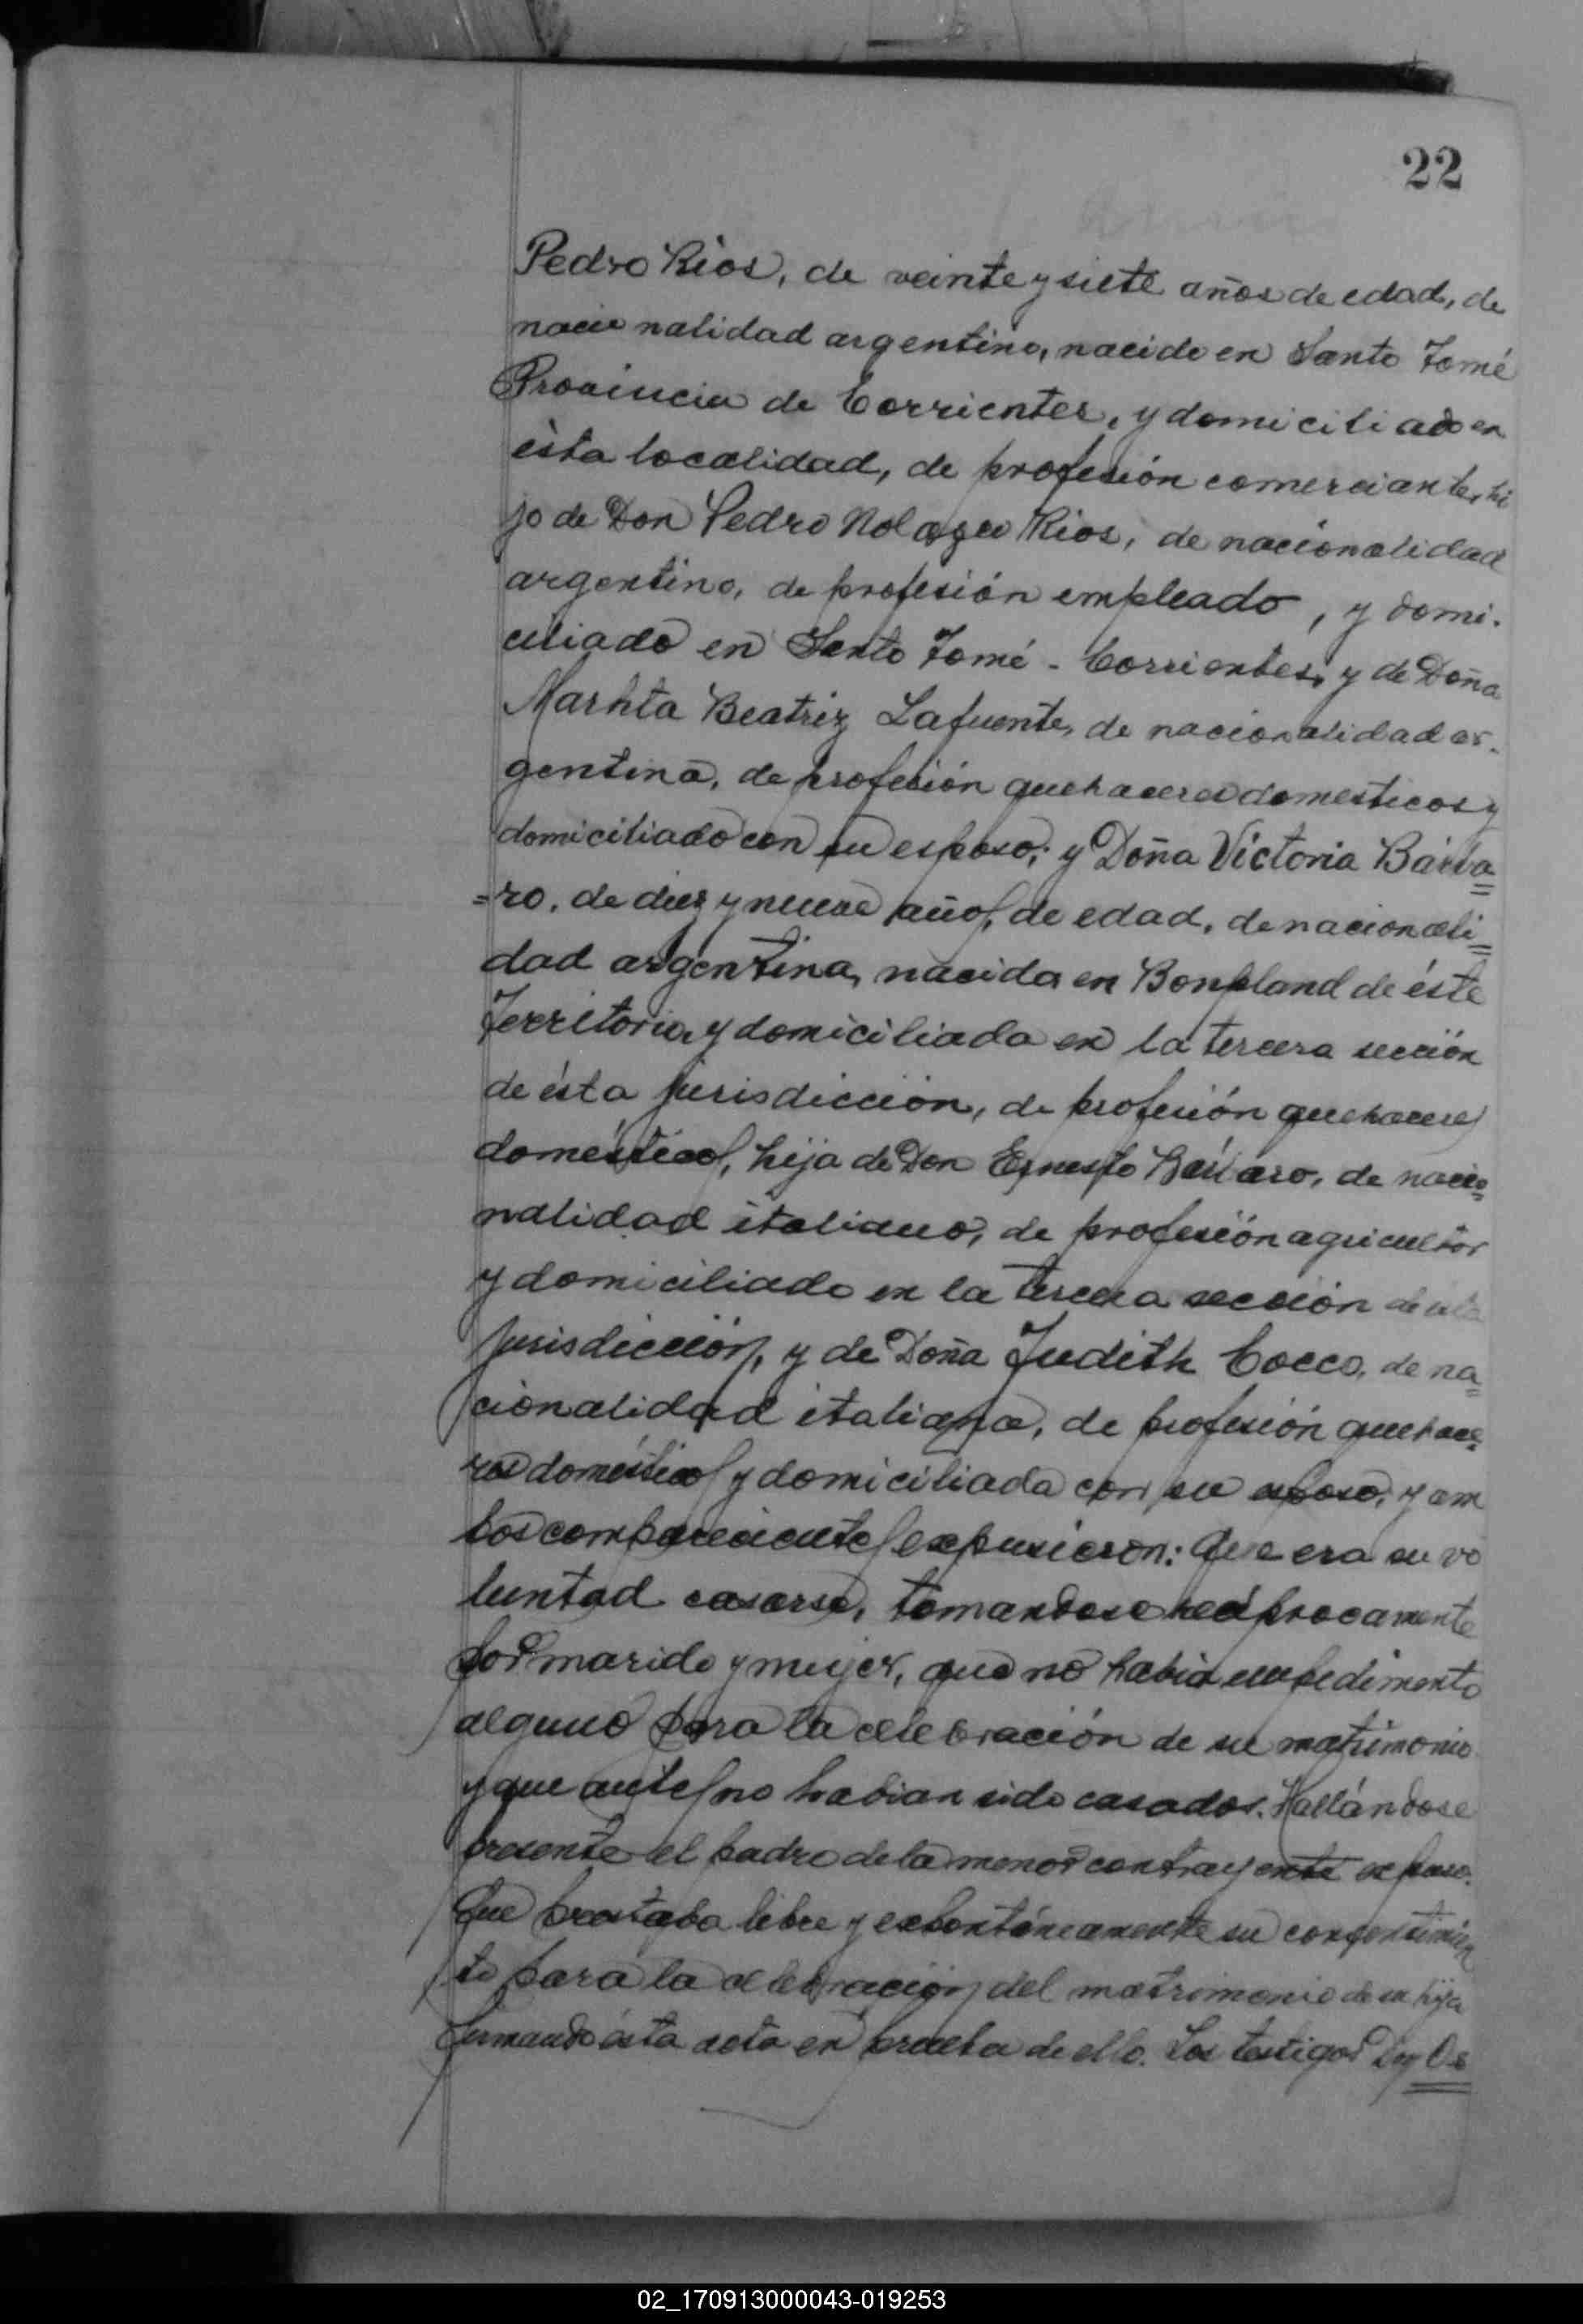 22
Pedro Rios, de veinte y siete años de edad, de
nacionalidad argentino, nacido en Santo Tomé
Provincia de Corrientes, y domiciliado en
ésta localidad, de profesión comerciante, hi
jo de Don Pedro Nolazco Rios, de nacionalidad
argentino, de profesión empleado, y domi-
ciliado en Santo Tomé - Corrientes, y de Doña
Marhta Beatriz Lafuente, de nacionalidad ar-
gentina, de profesión quehaceres domesticos y
domiciliado con su esposo; y Doña Victoria Bárba=
=ro, de diez y nueve años de edad, de nacionali=
dad argentina, nacida en Bonpland de éste
Territorio, y domiciliada en la tercera sección
de ésta jurisdicción, de profesión quehaceres
domésticos, hija de Don Ernesto Bárbaro, de nacio=
nalidad italiano, de profesión agricultor
y domiciliado en la tercera sección de ésta
jurisdicción, y de Doña Judith Cocco, de na=
cionalidad italiana, de profesión quehace=
res domésticos y domiciliada con su esposo; y am
bos comparecientes expusieron: Que era su vo
luntad casarse, tomandose recíprocamente
por marido y mujer, que no había impedimento
alguno para la celebración de su matrimonio
y que antes no habian sido casados. Hallándose
presente el padre de la menor contrayente expuso:
Que prestaba libre y espontáneamente su consentimien
to para la celebración del matrimonio de su hija
firmando ésta acta en prueba de ello. Los testigos Don Os
02_170913000043-019253